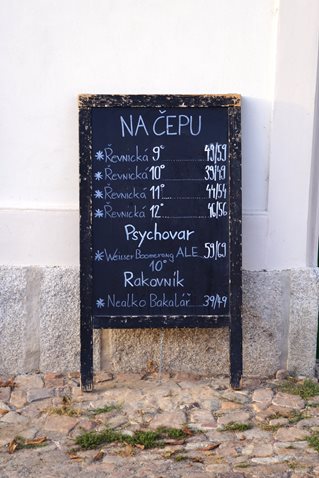 NA ČEPU
* Řevnická 9° ........ 49/59
* Řevnická 10° ........ 39/49
* Řevnická 11° ........ 44/54
* Řevnická 12° ........ 46/56
Psychovar
* Weisser Boomerang ALE... 59/69
10°
Rakovník
* Nealko Bakalář... 39/49